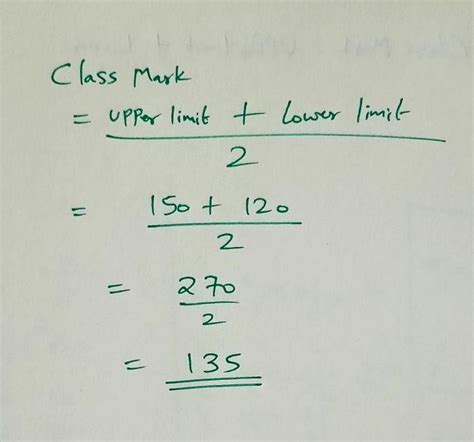 Class Mark
= upper limit + Lower limit
2
= 150 + 120
2
= 270
2
= 135